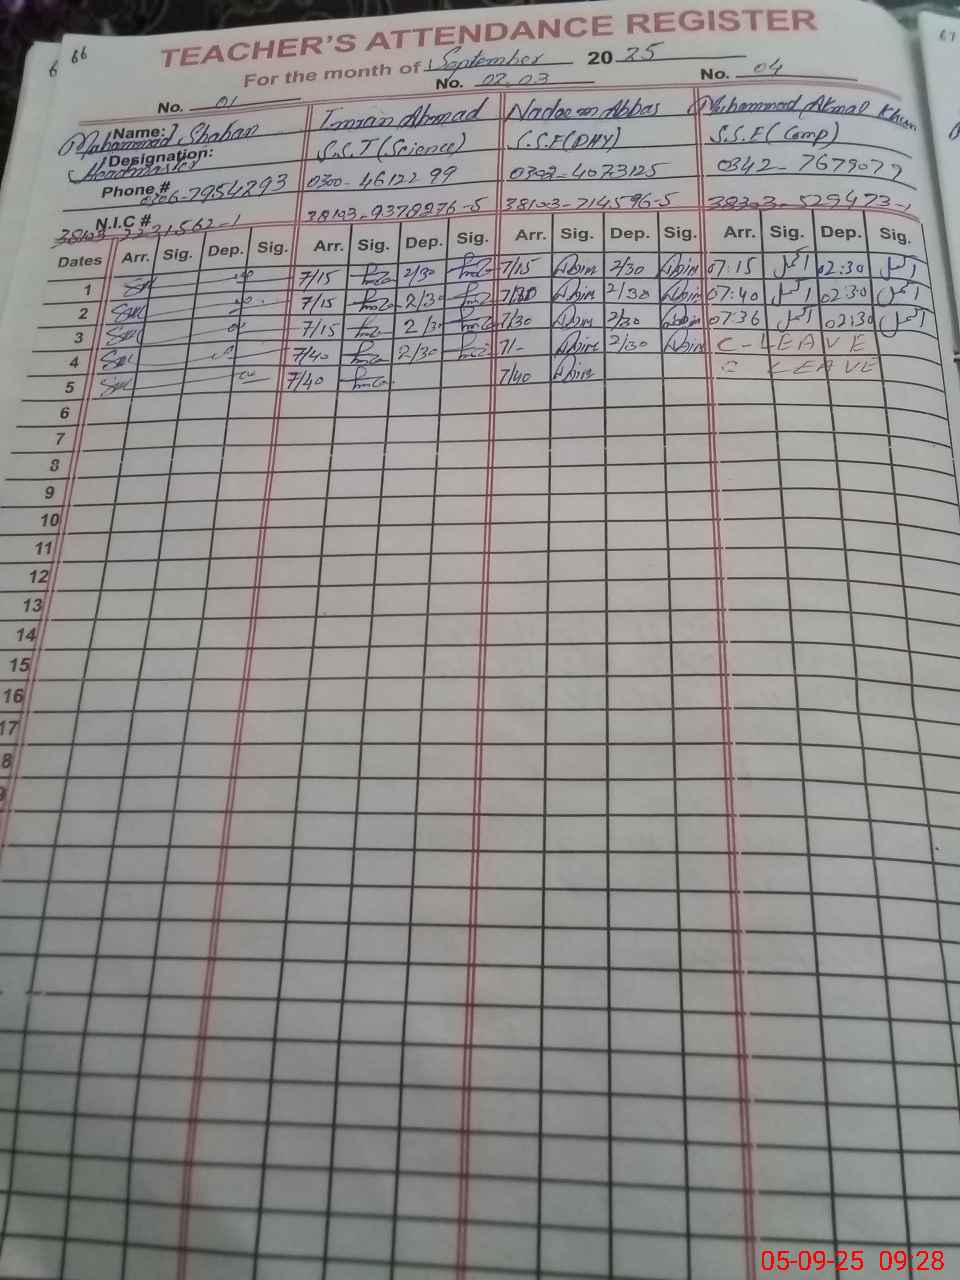 66
6
67
TEACHER'S ATTENDANCE REGISTER
For the month of September 2025
No. 01 No. 02,03 No. 04
Name: Muhammad Shaban Imran Ahmad Nadaem Abbas Muhammad Akmal Khan
Designation: Headmaster S.S.T (Science) S.S.E(PHY) S.S.E (Comp)
Phone # 7954293 0300-4612299 4073125 0342-7679079
N.I.C # 38103-9378276-5 38103-714596-5 38303-529473-1
Dates Arr. Sig. Dep. Sig. Arr. Sig. Dep. Sig. Arr. Sig. Dep. Sig. Arr. Sig. Dep. Sig.
1 7/15 2/30 7/15 Abim 2/30 Abim 07:15 اکمل 02:30 اکمل
2 7/15 2/30 Abim 2/30 Abim 07:40 اکمل 02:30 اکمل
3 7/15 2/30 7/30 Abim 2/30 Abim 07:36 اکمل 02:30 اکمل
4 7/40 2/30 7/- Abim 2/30 Abim C-LEAVE
5 7/40 7/40 Abim C LEAVE
6
7
8
9
10
11
12
13
14
15
16
17
8
9
05-09-25 09:28